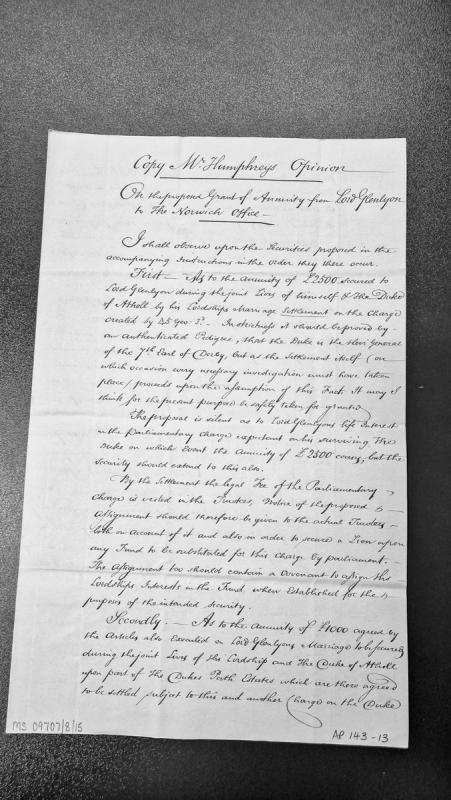 Copy Mr Humphreys Opinion
On the proposed Grant of Annuity from Lord Glenlyon
to The Norwich Office —
I shall observe upon the Securities proposed in the
accompanying Instructions in the order they there occur.
First — As to the annuity of £2500 secured to
Lord Glenlyon during the joint Lives of himself & the Duke
of Atholl by his Lordships Marriage Settlement on the Charge
created by 45 Geo: 3d. — In strictness it should be proved by
an authenticated Pedigree, that the Duke is the Heir General
of the 7th Earl of Derby, but as the Settlement itself (on
which occasion every necessary investigation must have taken
place) proceeds upon the assumption of this Fact It may I
think for the present purpose be safely taken for granted
The proposal is silent as to Lord Glenlyons life Interest
in the parliamentary charge expectant on his surviving The
Duke on which Event the annuity of £2500 ceases, but the
Security should extend to this also.
By the Settlement the legal Fee of the Parliamentary
charge is vested in the Trustees, Notice of the proposed
assignment should therefore be given to the actual Trustees —
both on account of it and also in order to secure a Lien upon
any Fund to be substituted for this charge by parliament. —
The assignment too should contain a Covenant to assign His
Lordships Interests in the Fund when Established for the
purposes of the intended security.
Secondly. — As to the annuity of £1000 agreed by
the Articles also executed on Lord Glenlyons Marriage to be secured
during the joint Lives of His Lordship and The Duke of Atholl
upon part of The Dukes Perth Estates which are there agreed
to be settled subject to this and another Charge on the Duke
MS 09707/8/15
AP 143-13